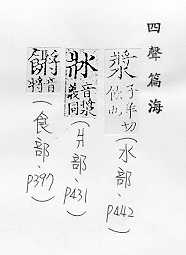 四聲篇海
子羊切
(水部、p442)
音漿
義同
(爿部、p431)
音將
(食部、p397)